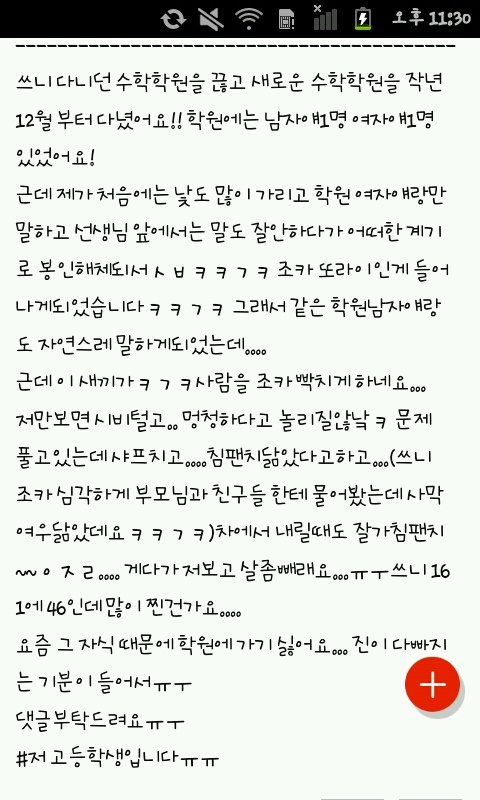 오후 11:30
쓰니 다니던 수학학원을 끊고 새로운 수학학원을 작년
12월 부터 다녔어요!! 학원에는 남자얘1명 여자얘1명
있었어요!
근데 제가 처음에는 낯도 많이 가리고 학원 여자얘랑만
말하고 선생님 앞에서는 말도 잘안하다가 어떠한 계기
로 봉인해체되서 ㅅㅂㅋㅋㄱㅋ 조카 또라이인게 들어
나게되었습니다ㅋㅋㄱㅋ 그래서 같은 학원남자얘랑
도 자연스레 말하게되었는데....
근데 이 새끼가ㅋㄱㅋ사람을 조카 빡치게 하네요...
저만보면 시비털고.. 멍청하다고 놀리질않낰ㅋ 문제
풀고있는데 샤프치고....침팬치닮았다고하고...(쓰니
조카 심각하게 부모님과 친구들 한테 물어봤는데 사막
여우닮았데요ㅋㅋㄱㅋ)차에서 내릴때도 잘가침팬치
~~ㅇㅈㄹ.... 게다가 저보고 살좀빼래요...ㅠㅜ쓰니 16
1에 46인데 많이 찐건가요....
요즘 그 자식 때문에 학원에 가기 싫어요... 진이 다빠지
는 기분이 들어서ㅠㅜ
댓글부탁드려요ㅠㅜ
#저 고등학생입니다ㅠㅠ